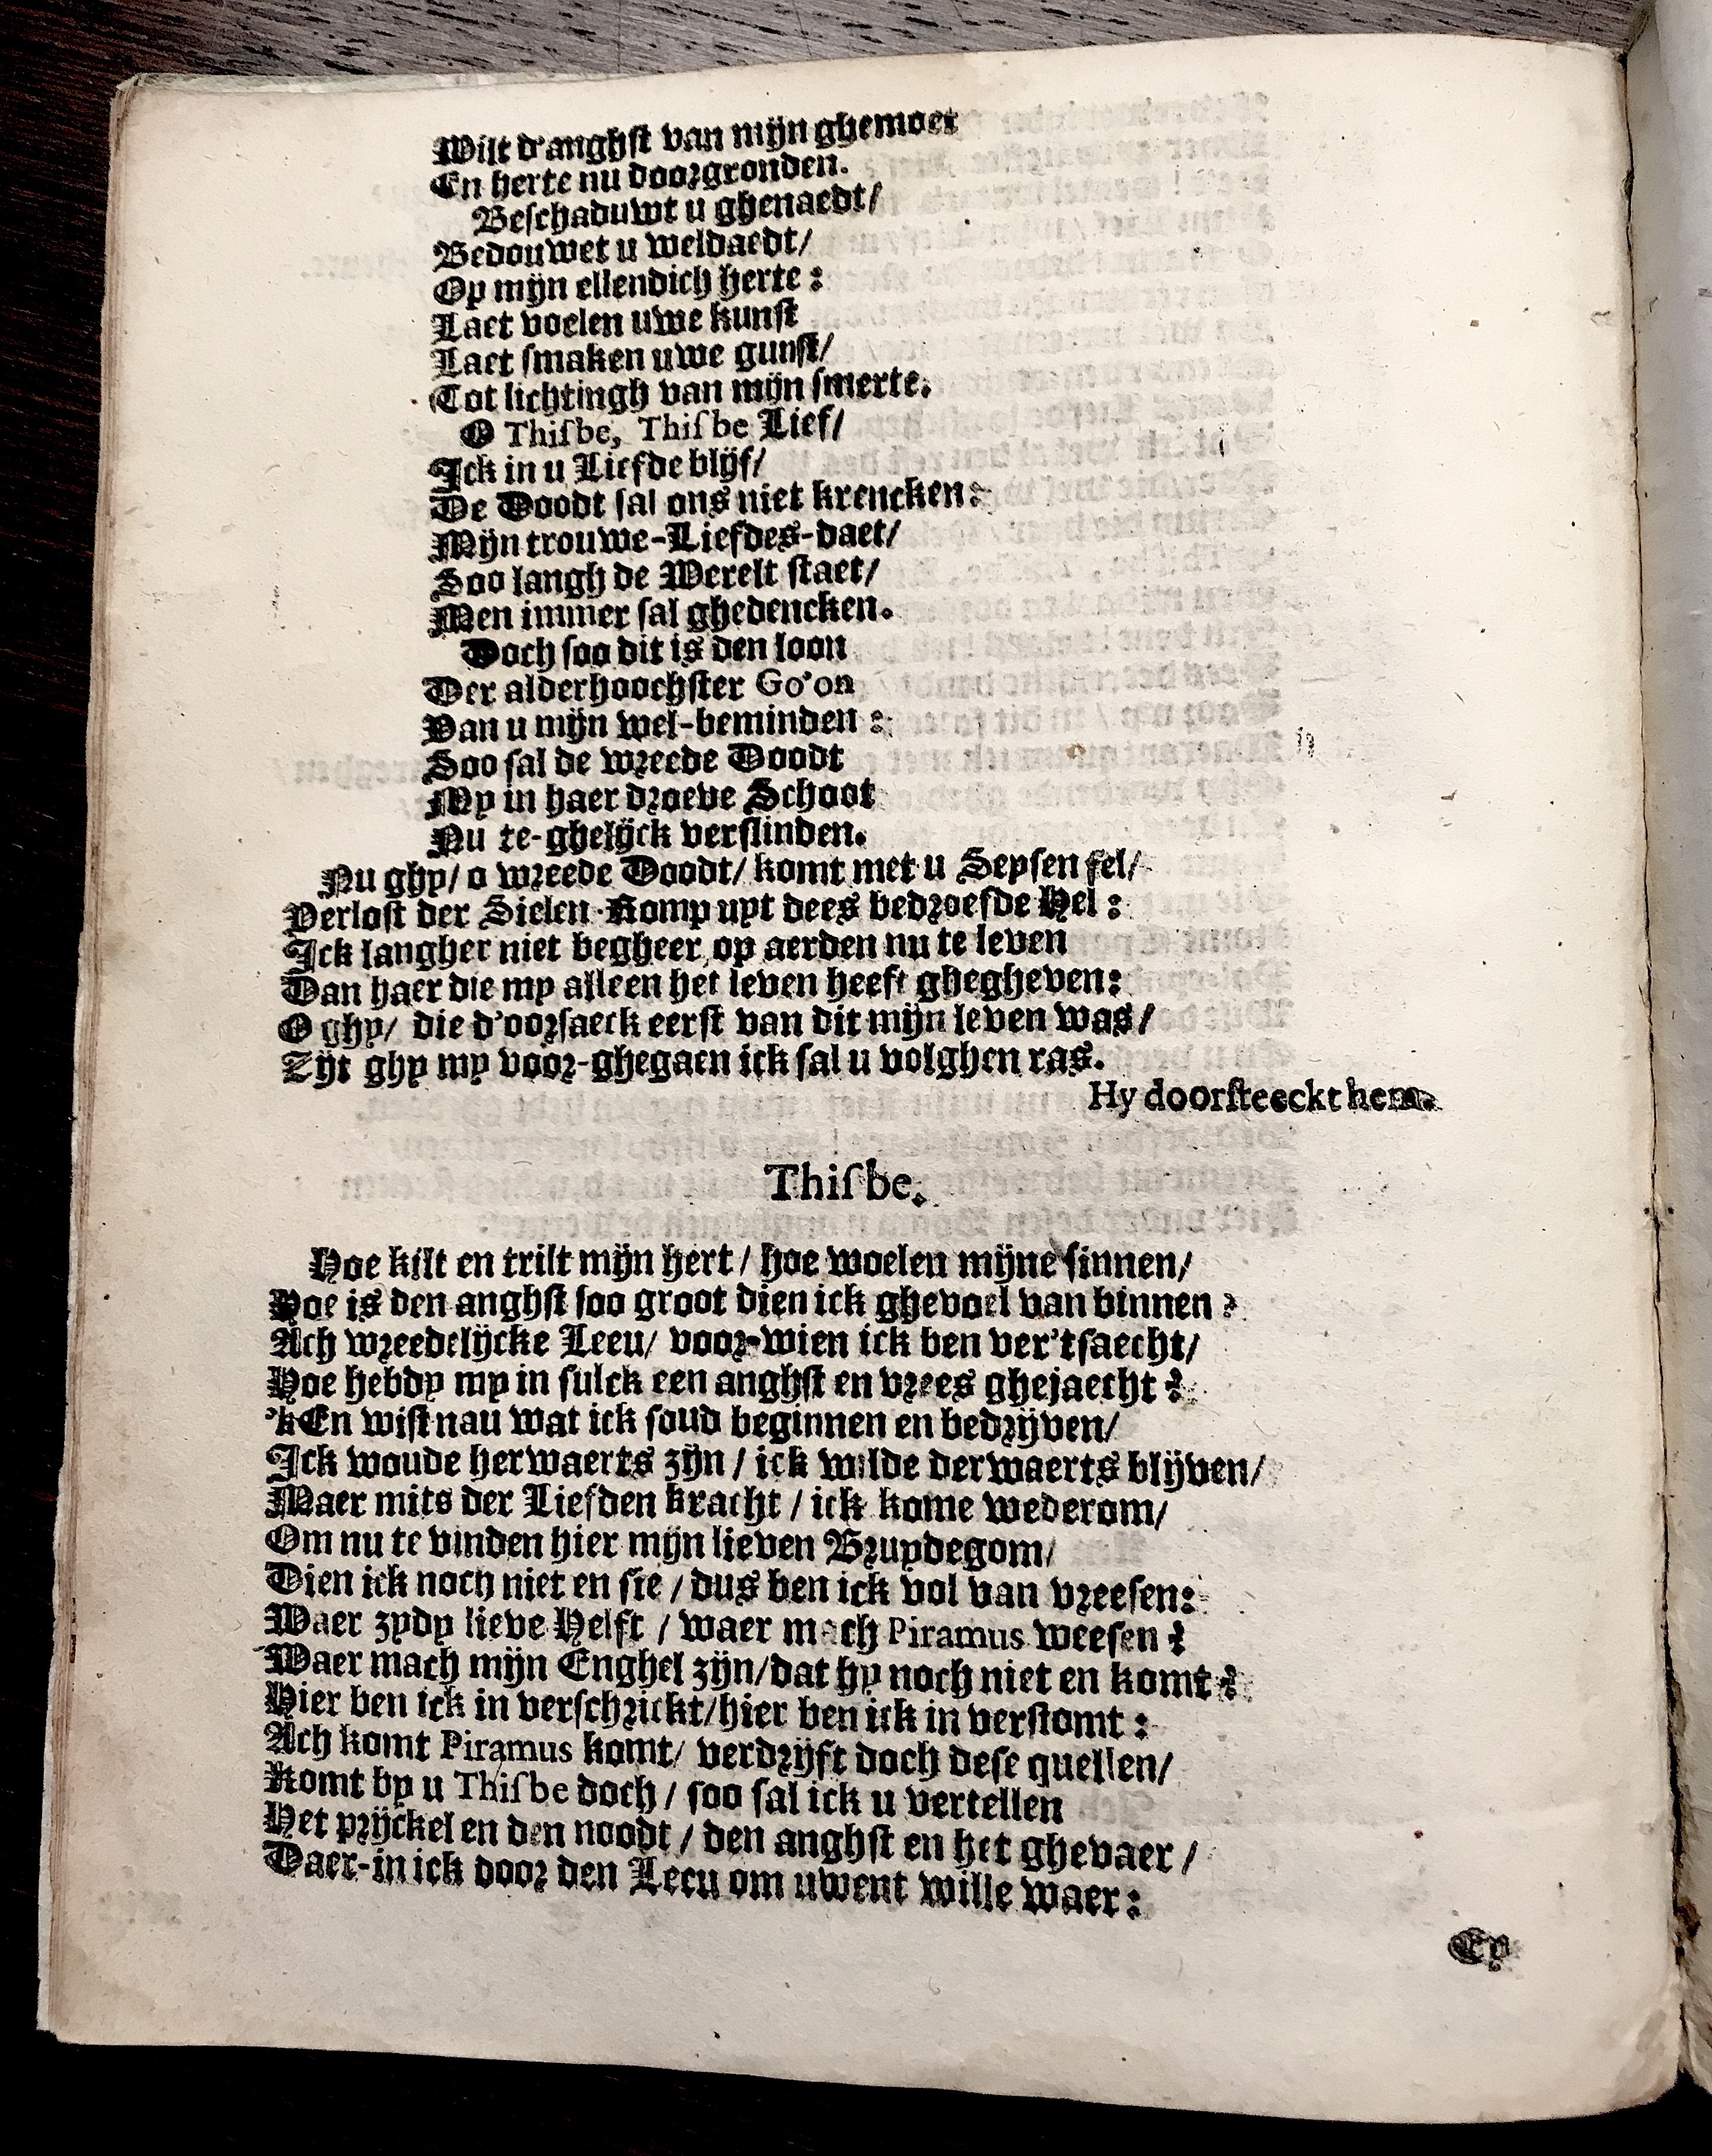 Wilt d'anghst van mijn ghemoet
En herte nu doorgronden.
Beschaduwt u ghenaedt/
Bedouwet u weldaedt/
Op mijn ellendich herte:
Laet voelen uwe kunst
Laet smaken uwe gunst/
Tot lichtingh van mijn smerte.
O Thisbe, Thisbe Lief/
Ick in u Liefde blijf/
De Doodt sal ons niet krencken:
Mijn trouwe-Liefdes-daet/
Soo langh de Werelt staet/
Men immer sal ghedencken.
Doch soo dit is den loon
Der alderhoochster Go'on
Van u mijn wel-beminden:
Soo sal de wreede Doodt
My in haer droeve Schoot
Nu te-ghelijck verslinden.
Nu ghy/ o wreede Doodt/ komt met u Seysen fel/
Verlost der Sielen Romp uyt dees bedroefde Hel:
Ick langher niet begheer op aerden nu te leven
Dan haer die my alleen het leven heeft ghegheven:
O ghy/ die d'oorsaeck eerst van dit mijn leven was/
Zijt ghy my voor-ghegaen ick sal u volghen ras.
Hy doorsteeckt hem.
Thisbe.
Hoe kilt en trilt mijn hert/ hoe woelen mijne sinnen/
Hoe is den anghst soo groot dien ick ghevoel van binnen?
Ach wreedelijcke Leeu/ voor-wien ick ben ver'tsaecht/
Hoe hebdy my in sulck een anghst en vrees ghejaecht?
'kEn wist nau wat ick soud beginnen en bedrijven/
Ick woude herwaerts zijn/ ick wilde derwaerts blijven/
Maer mits der Liefden kracht/ ick kome wederom/
Om nu te vinden hier mijn lieven Bruydegom/
Dien ick noch niet en sie/ dus ben ick vol van vreesen:
Waer zydy lieve Helft/ waer mach Piramus weesen?
Waer mach mijn Enghel zijn/dat hy noch niet en komt?
Hier ben ick in verschrickt/hier ben ick in verstomt:
Ach komt Piramus komt/ verdrijft doch dese quellen/
Komt by u Thisbe doch/ soo sal ick u vertellen
Het prijckel en den noodt/ den anghst en het ghevaer/
Daer-in ick door den Leeu om uwent wille waer:
Ey